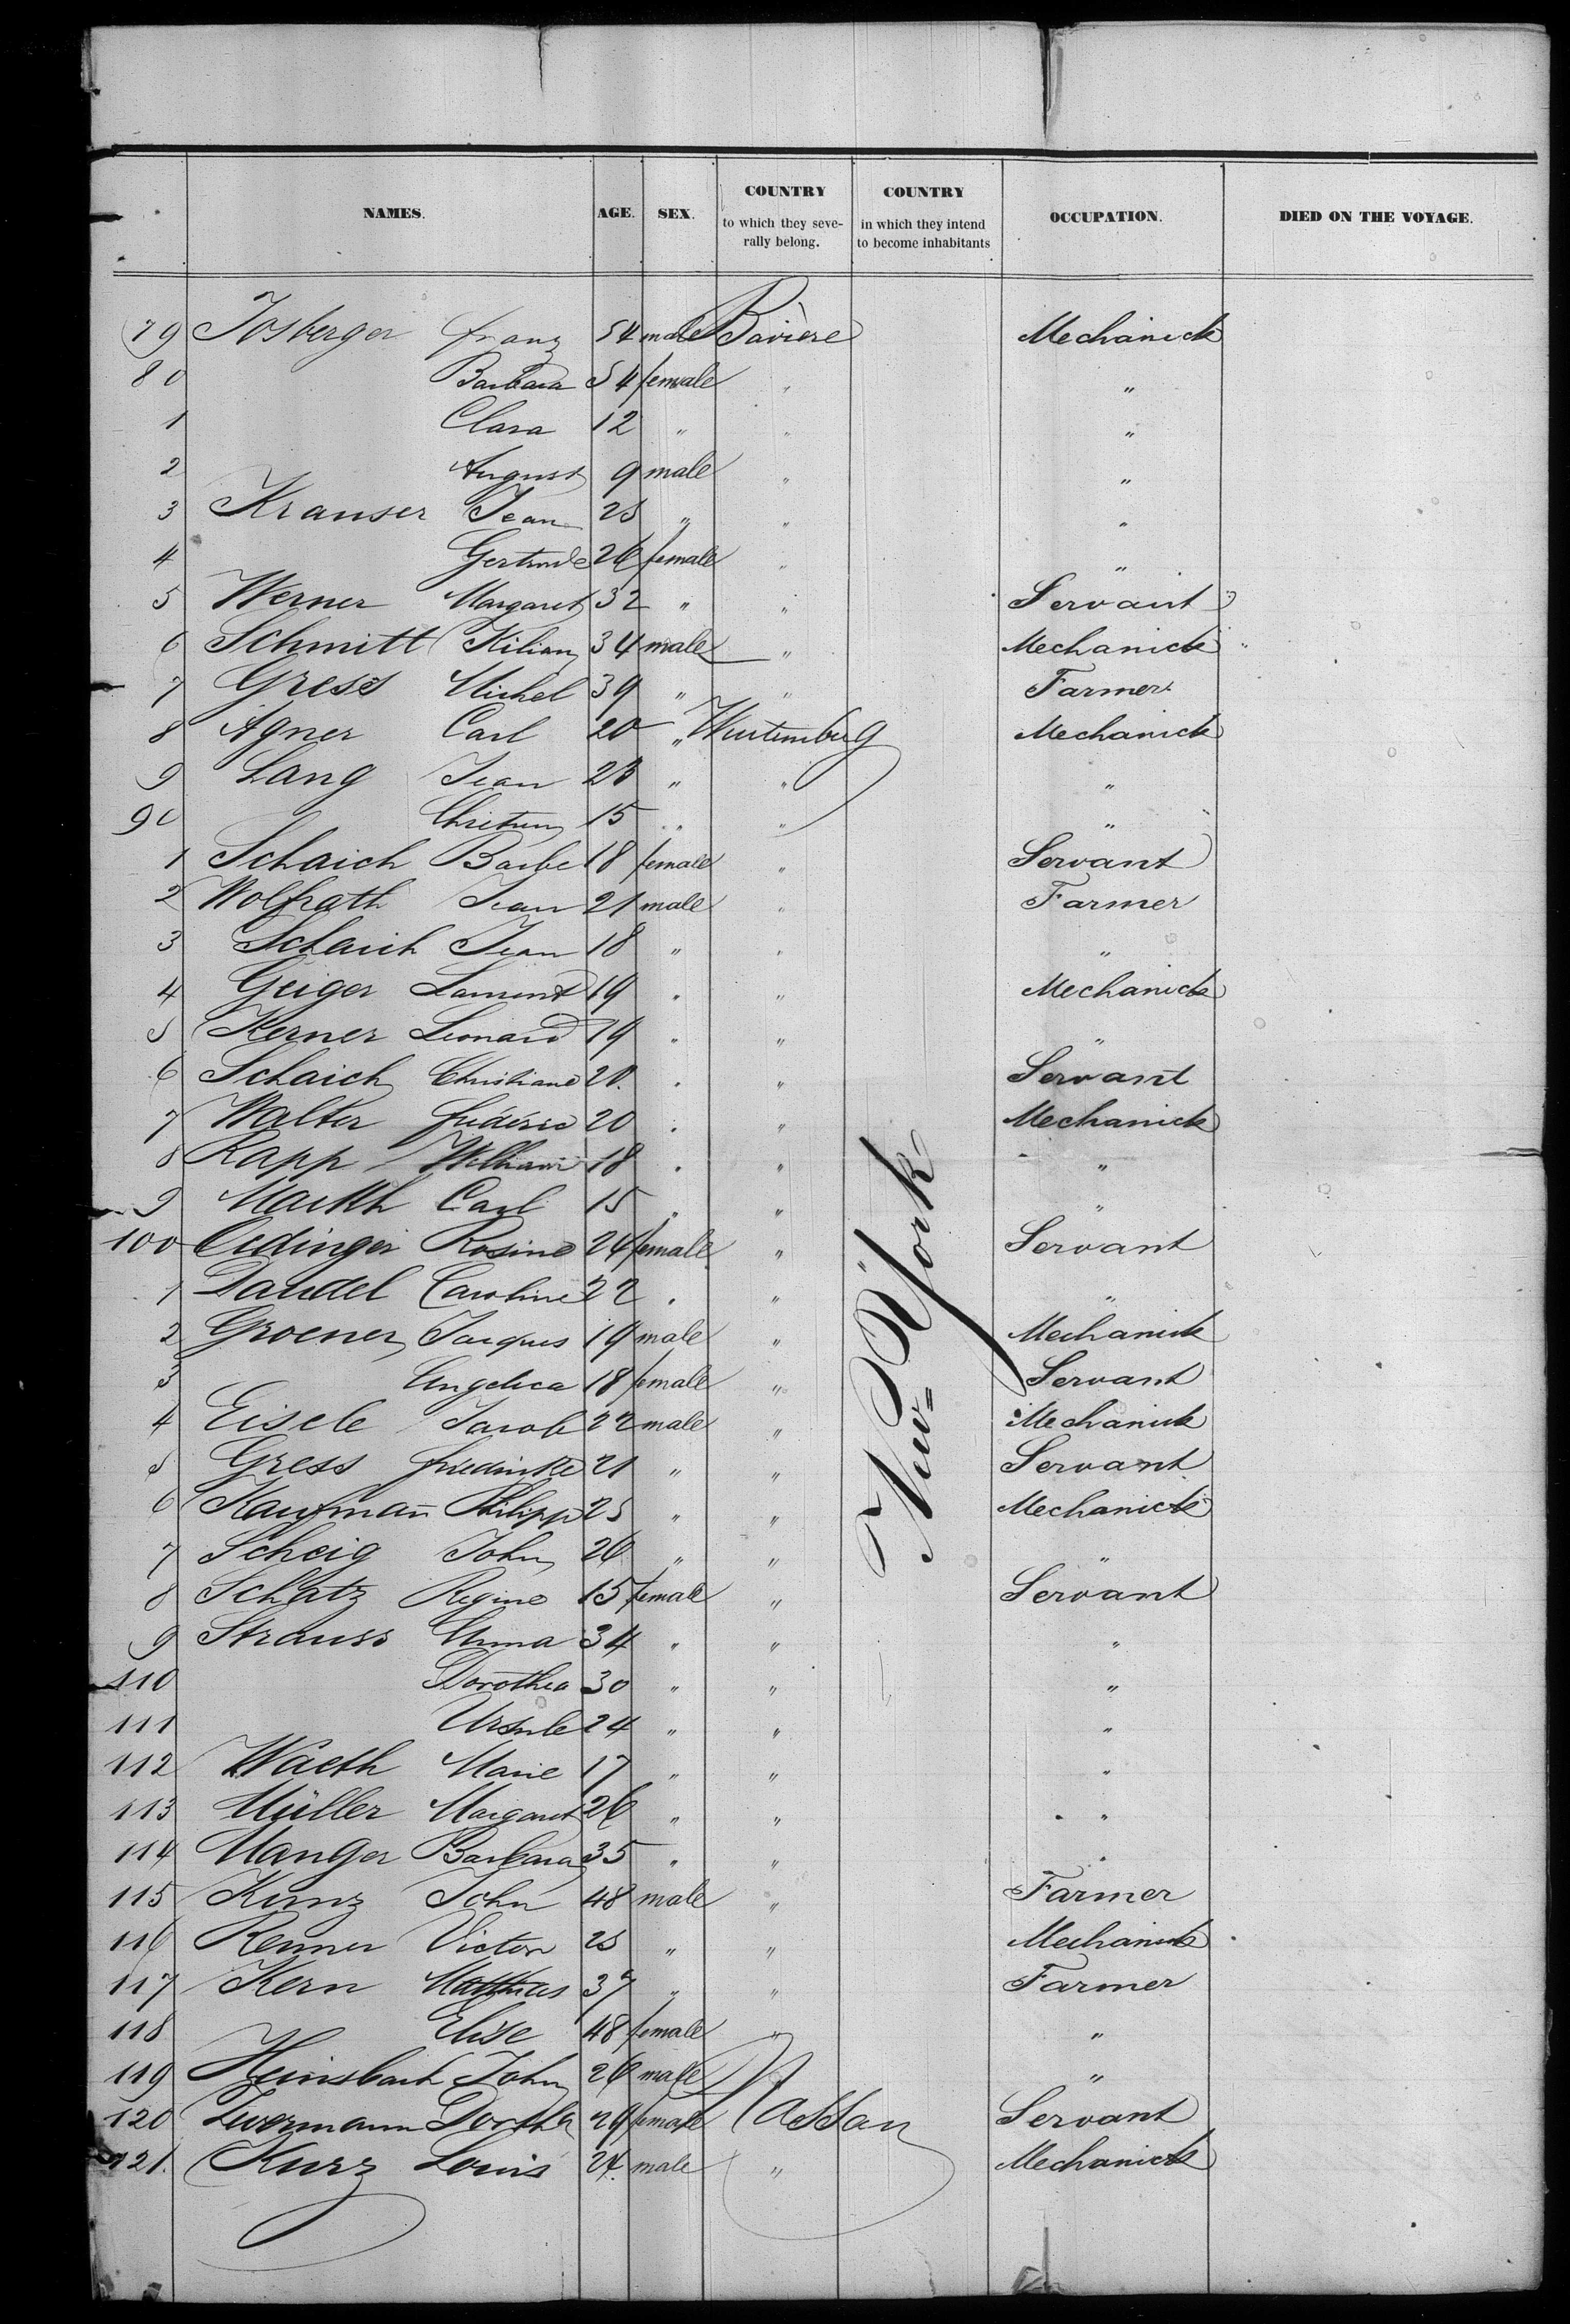 NAMES. AGE. SEX. COUNTRY to which they seve- rally belong. COUNTRY in which they intend to become inhabitants OCCUPATION. DIED ON THE VOYAGE.
79 Josberger franz 54 male Bavière Mechanick
80 Barbara 54 female " "
1 Clara 12 " " "
2 August 9 male " "
3 Krauser Jean 25 " " "
4 Gertrude 26 female " "
5 Werner Margaret 32 " " Servant
6 Schmitt Kilian 34 male " Mechanick
7 Gress Michel 39 " " Farmer
8 Agner Carl 20 " Wurtemburg Mechanick
9 Lang Jean 23 " " "
90 15 " " "
1 Schaich Barbe 18 female " Servant
2 Wolfrath Jean 21 male " Farmer
3 Schaich Jean 18 " " "
4 Geiger 19 " " Mechanick
5 Kerner Leonard 19 " " "
6 Schaich Christiane 20 " " Servant
7 Walter fréderic 20 " " Mechanick
8 Rapp William 18 " " "
9 Carl 15 " " "
100 Rosine 24 female " Servant
1 Daudel Caroline 22 " " "
2 Groener Jacques 19 male " Mechanick
3 Angelica 18 female " Servant
4 Eisele Jacob 22 male " Mechanick
5 Gress 21 " " Servant
6 Kaufman̄ Philipp 25 " " Mechanick
7 Scheig John 26 " " "
8 Schatz Regine 15 female " Servant
9 Strauss Anna 34 " " "
110 Dorothea 30 " " "
111 Ursule 24 " " "
112 Waeth Marie 17 " " "
113 Müller Margaret 26 " " "
114 Manger Barbara 35 " " "
115 Kunz John 48 male " Farmer
116 Renner Victor 25 " " Mechanick
117 Kern Matthias 37 " " Farmer
118 Elise 48 female " "
119 Heinsbach John 26 male "
120 29 female Nassau Servant
121. Kurz Louis 24 male " Mechanick
New-York